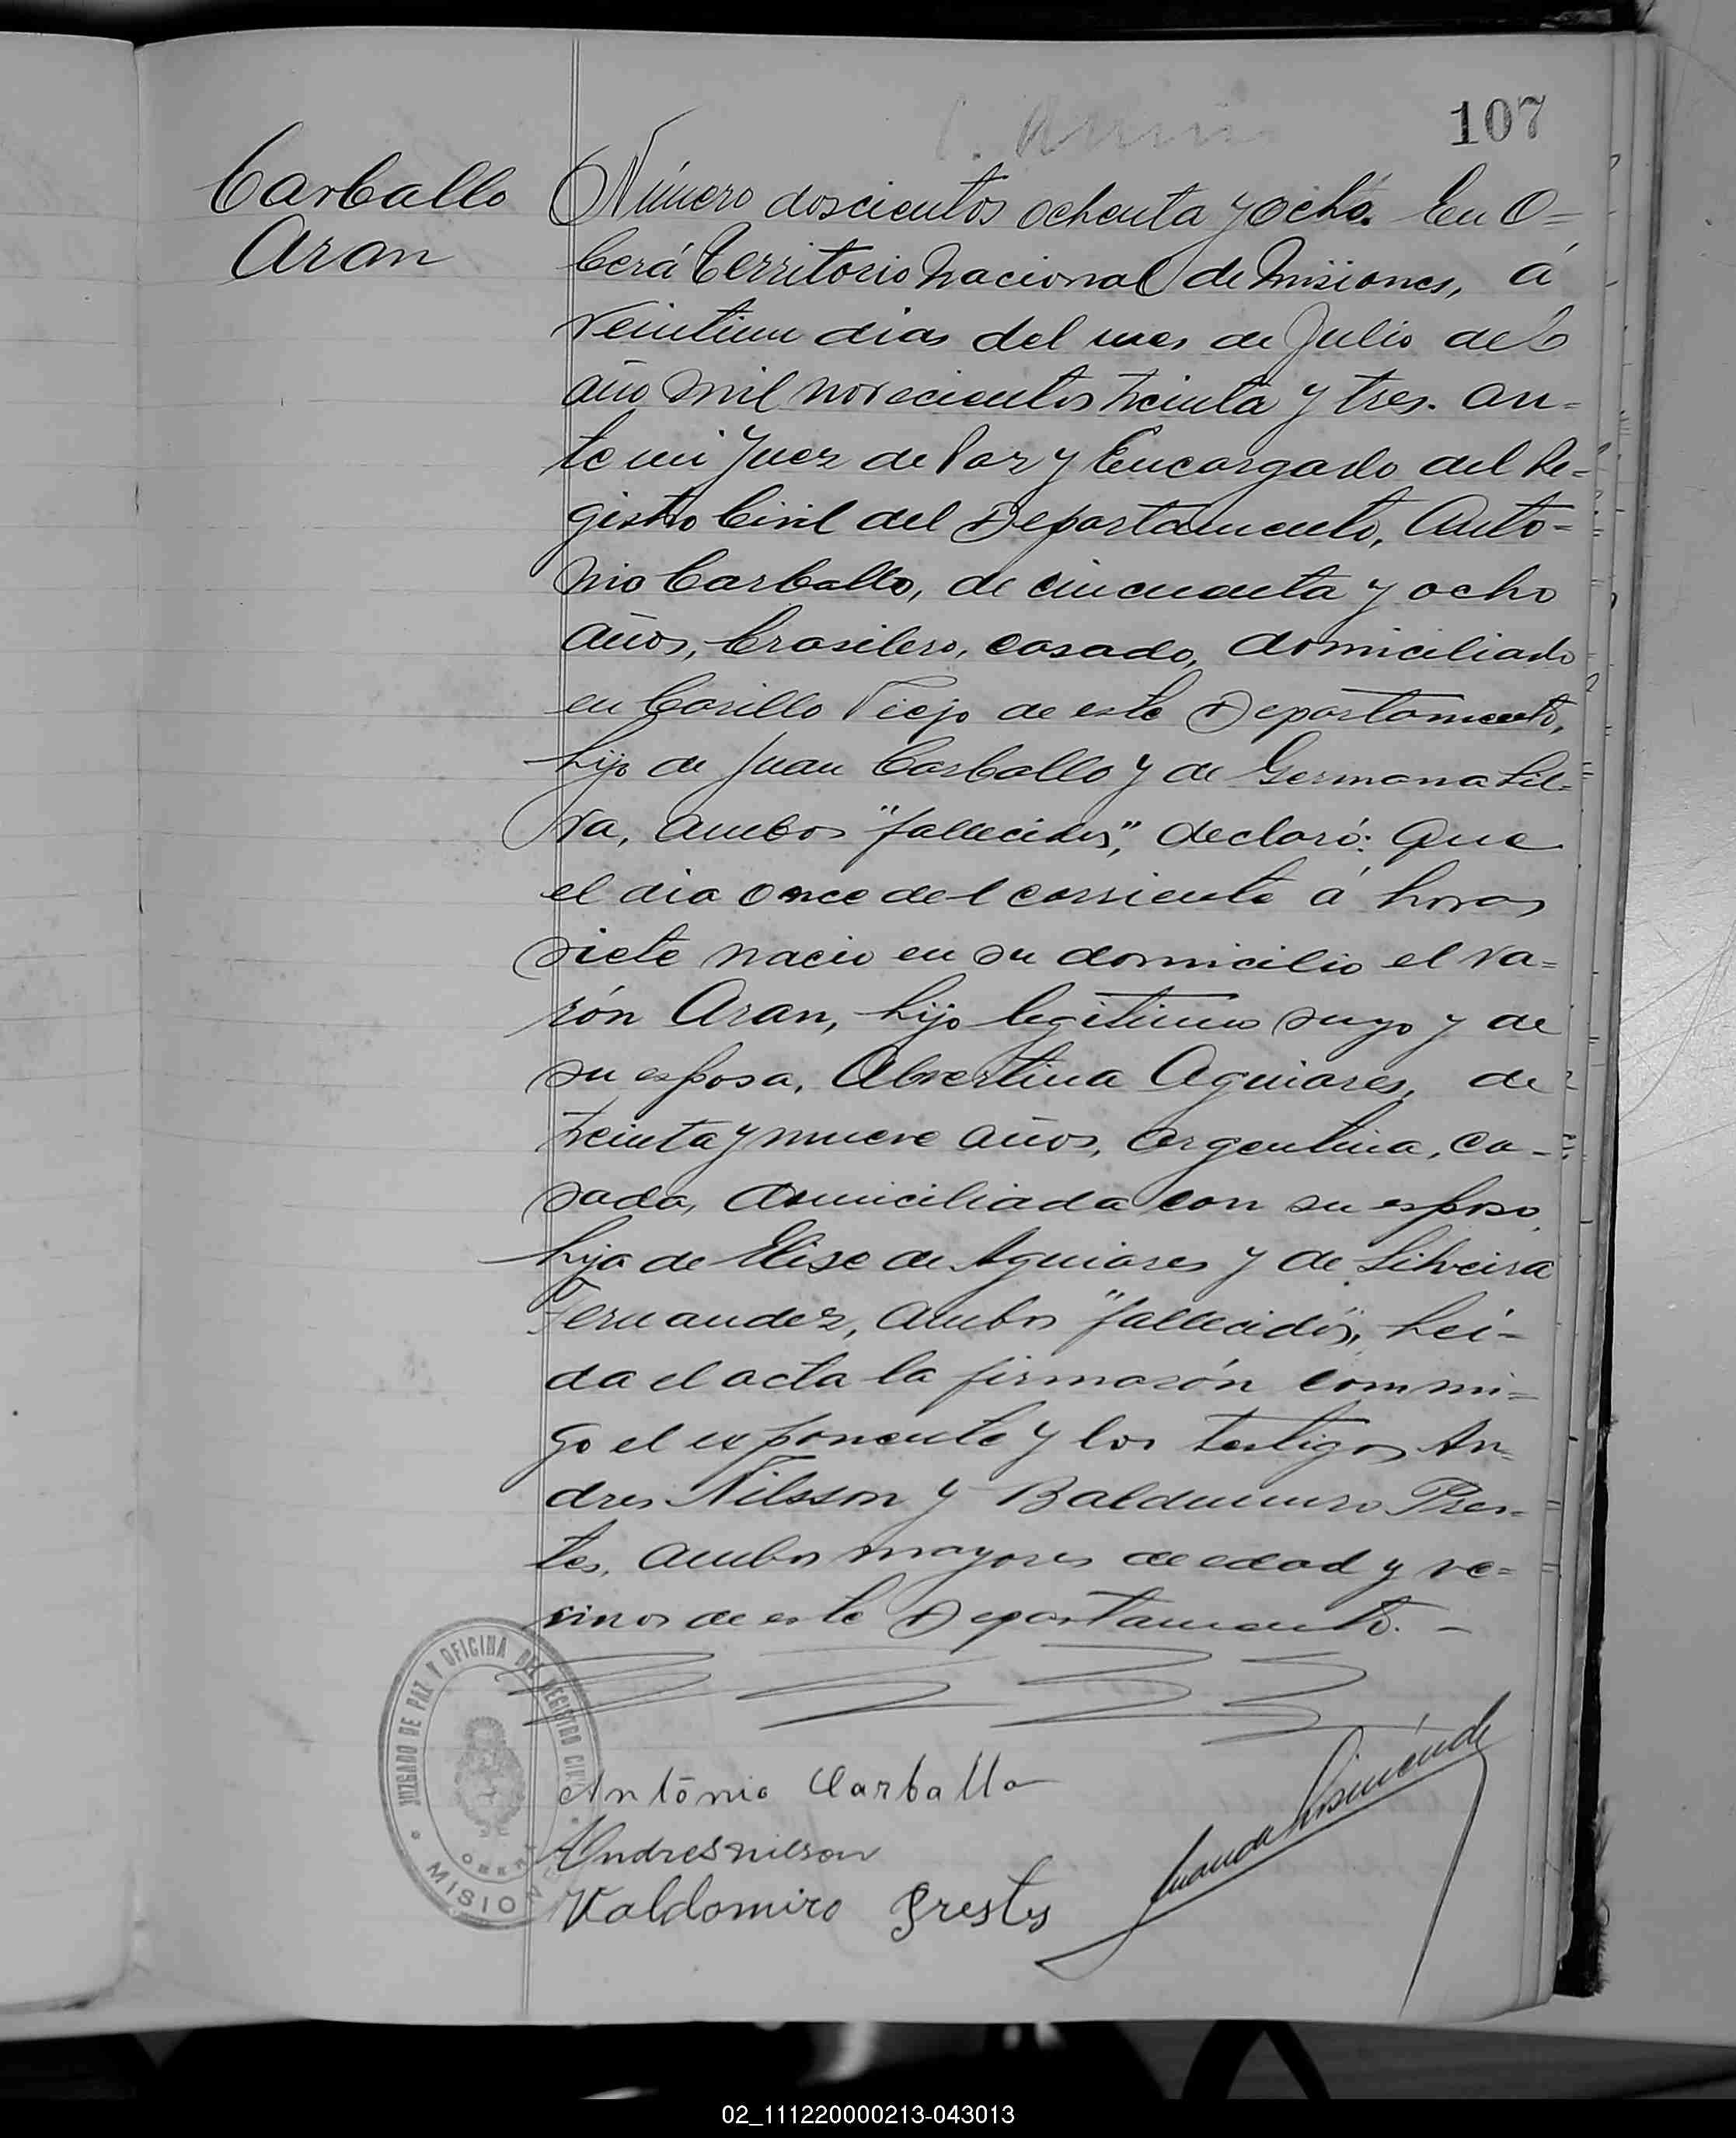 107
Carballo
Aran
Número doscientos ochenta y ocho. En O=
berá Territorio Nacional de Misiones, á
veintiun dias del mes de Julio del
año mil novecientos treinta y tres. an=
te mi Juez de Paz y Encargado del Re=
gistro Civil del Departamento, Anto=
nio Carballo, de cincuenta y ocho
años, brasilero, casado, domiciliado
en Cerillo Viejo de este Departamento,
hijo de Juan Carballo y de Germana Sil=
va, ambos "fallecidos", declaró: Que
el dia once del corriente á horas
siete nacio en su domicilio el va=
rón Aran, hijo legitimo suyo y de
su esposa, Alvertina Aguiares, de
treinta y nueve años, argentina, ca-
sada, domiciliada con su esposo,
hija de Elise de Aguiares y de Silveira
Fernandez, ambos "fallecidos", Lei-
da el acta la firmarón conmi=
go el exponente y los testigos An=
dres Nilsson y Baldumiro Pres=
tes, ambos mayores de edad y ve=
cinos de este Departamento. -
JUZGADO DE PAZ Y OFICINA DEL REGISTRO CIVIL
OBERÁ
MISIONES
António Carballo
Andres nilson
Valdomiro Prestes
02_111220000213-043013